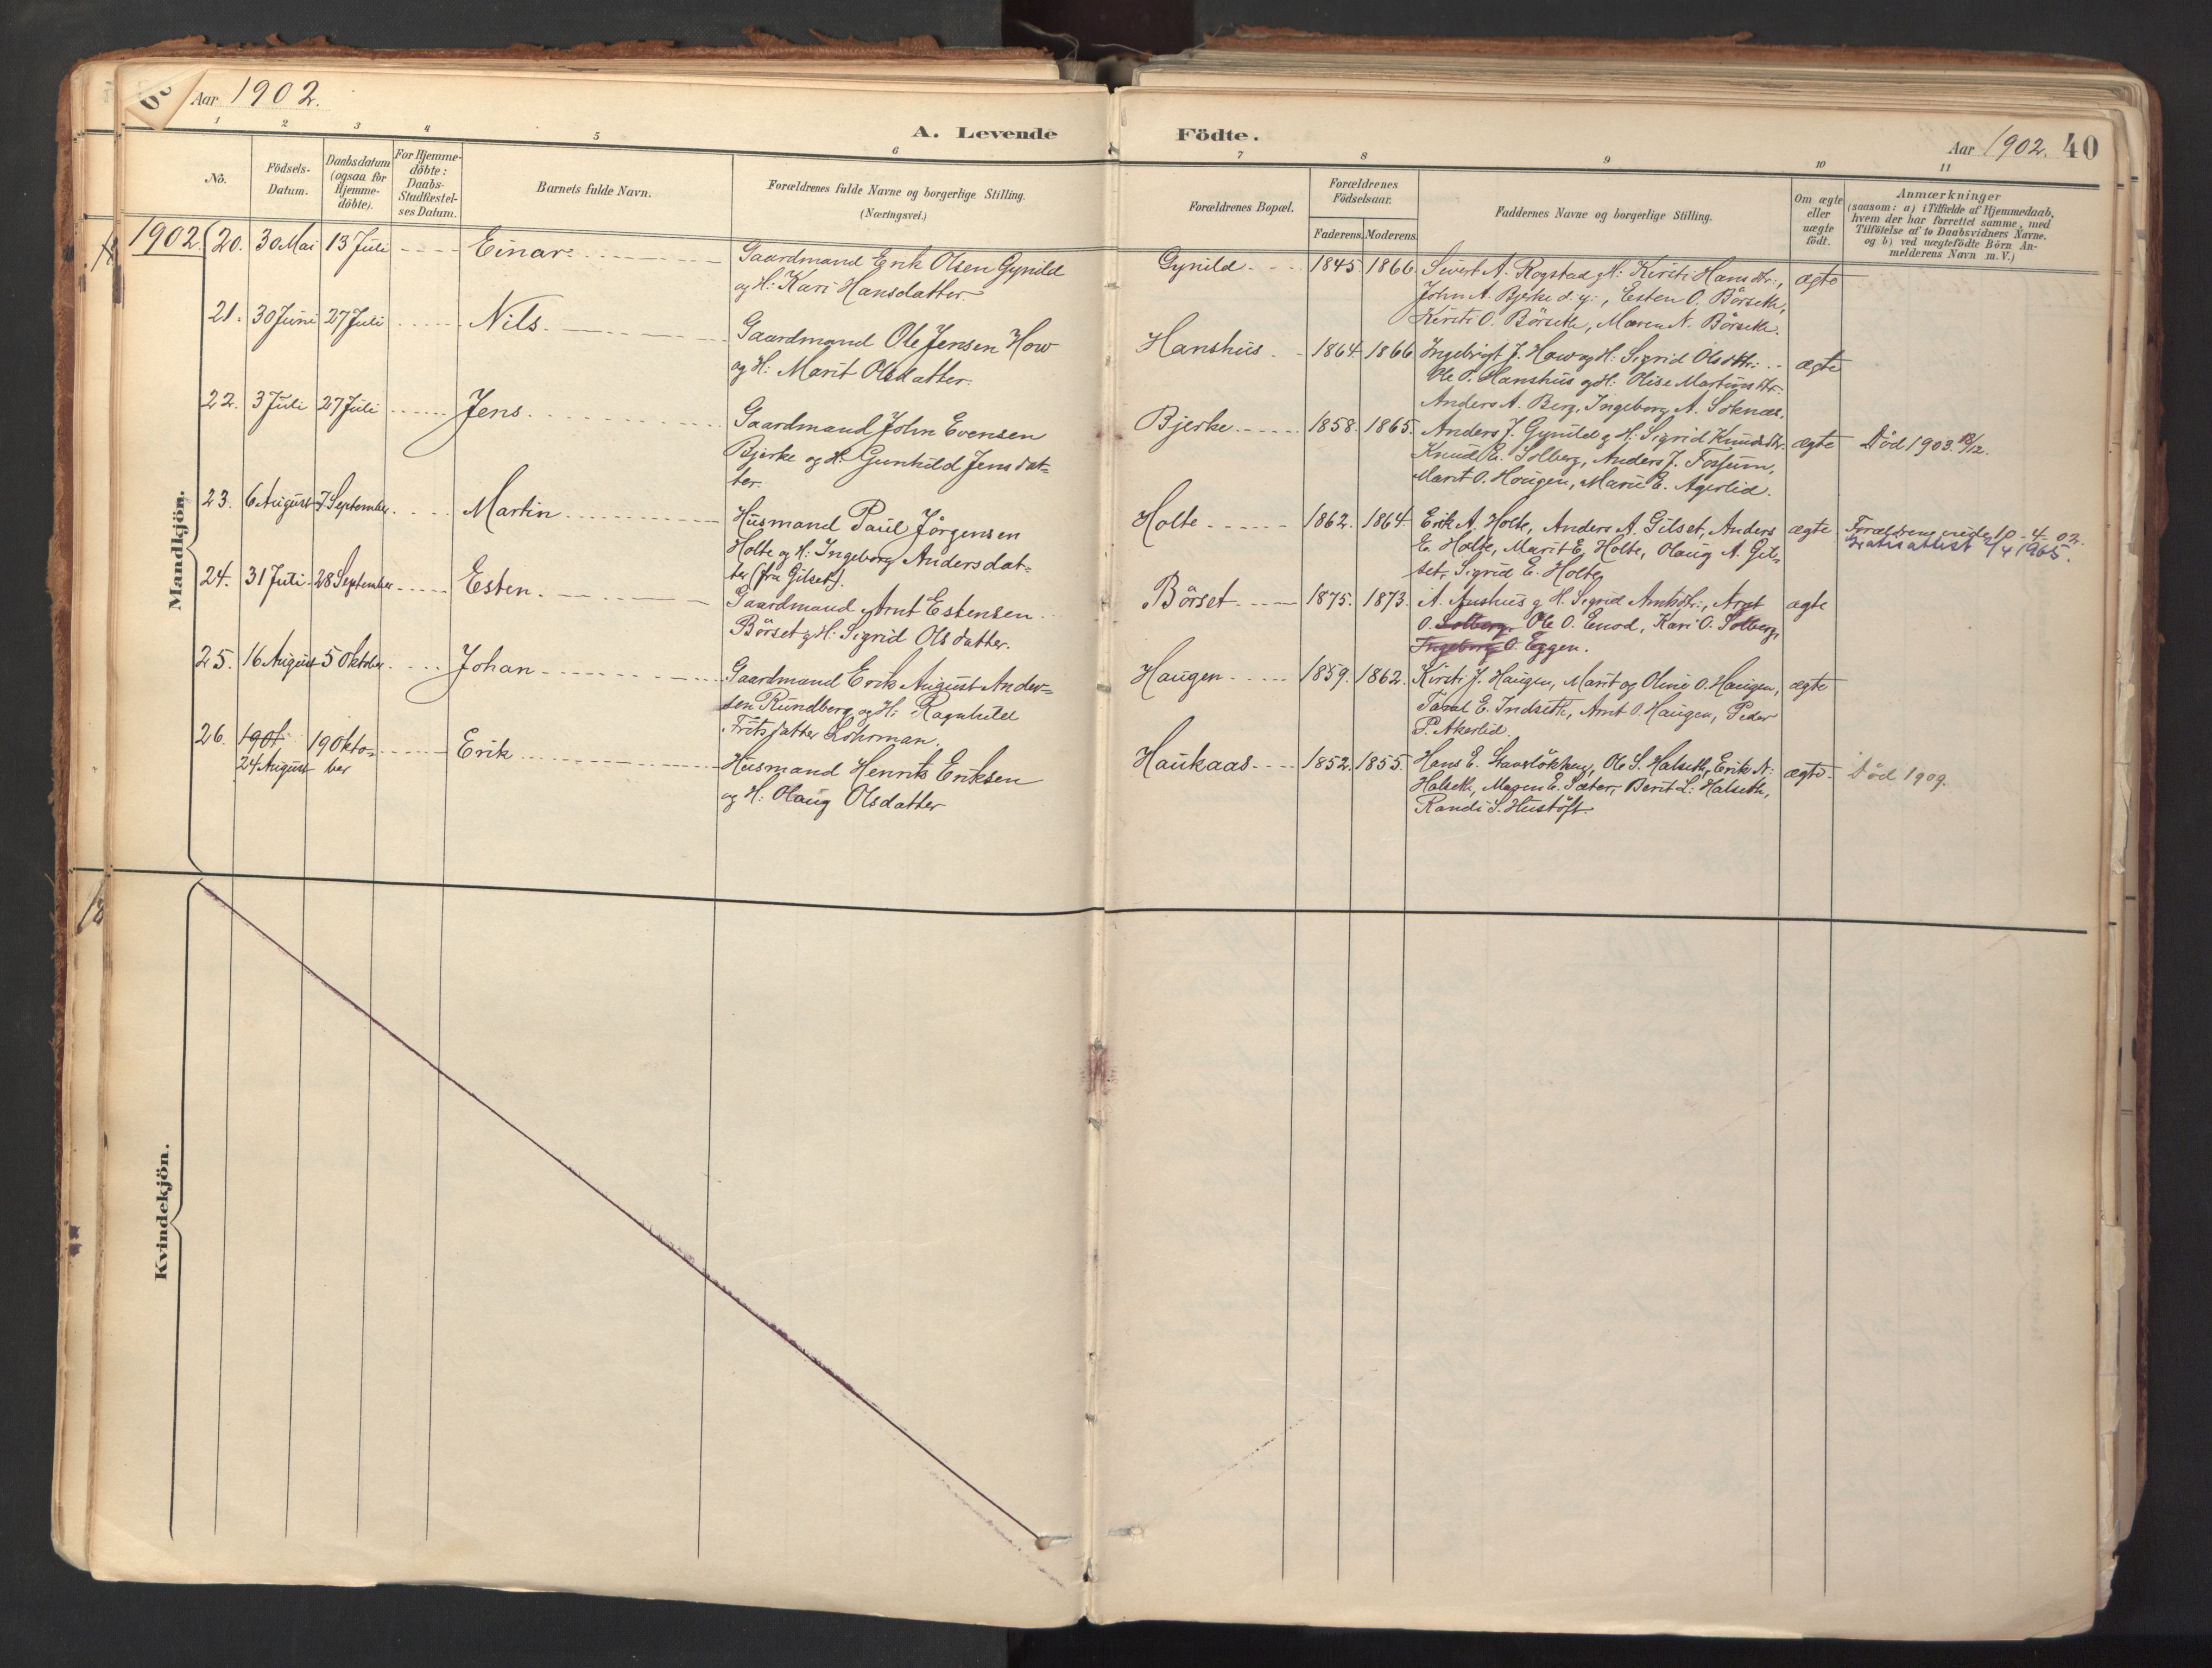 Aar 1902.
A. Levende
1 2 3 4 5 6
No.
Födsels-
Datum.
Daabsdatum
(ogsaa for
Hjemme-
döbte).
For Hjemme-
döbte:
Daabs-
Stadfæstel-
ses Datum.
Barnets fulde Navn.
Forældrenes fulde Navne og borgerlige Stilling.
(Næringsvei.)
Mandkjön.
1902. 20. 30 Mai 13 Juli Einar. Gaardmand Erik Olsen Gynild
og H: Kari Hansdatter.
21. 30 Juni 27 Juli Nils. Gaardmand Ole Jensen How
og H: Marit Olsdatter.
22. 3 Juli 27 Juli Jens. Gaardmand John Evensen
Bjerke og H: Gunhild Jensdat=
ter.
23. 6 August 7 September. Martin Husmand Paul Jörgensen
Holte og H: Ingeborg Andersdat=
ter (fra Gilset).
24. 31 Juli 28 September Esten. Gaardmand Arnt Estensen
Börset og H: Sigrid Olsdatter.
25. 16 August 5 Oktober. Johan Gaardmand Erik August Ander=
sen Rundberg og H: Ragnhild
Fritsdatter Löhrman.
26. 1901 19 Okto= Erik Husmand Henrik Eriksen
24 August ber og H: Olaug Olsdatter
Kvindekjön.
Födte.
Aar 1902. 40
7 8 9 10 11
Forældrenes Bopæl.
Forældrenes
Födselsaar.
Faderens. Moderens.
Faddernes Navne og borgerlige Stilling.
Om ægte
eller
uægte
födt.
Anmærkninger
(saasom: a) i Tilfælde af Hjemmedaab,
hvem der har forrettet samme, med
Tilföielse af to Daabsvidners Navne.
og b) ved uægtefödte Börn An-
melderens Navn m.V.)
Gynild 1845 1866 Sivert A. Rogstad og H: Kirsti Hansdtr:, ægte
John A. Bjerke d. y:, Esten O. Börseth,
Kirsti O. Börseth, Maren N. Börseth.
Hanshus 1864 1866 Ingebrigt J. How og H: Sigrid Olsdtr: ægte
Ole O. Hanshus og H: Olise Martinsdtr:
Anders A. Berg, Ingeborg A. Soknæs.
Bjerke 1858. 1865. Anders J. Gynild og H: Sigrid Knudsdtr. ægte Död 1903 18/12.
Knud E. Solberg, Anders J. Fossum,
Marit O. Hougen, Marie E. Agerlid.
Holte 1862. 1864 Erik A. Holte, Anders A. Gilset, Anders ægte Forældrene viede 10-4-02.
E. Holte, Marit E. Holte, Olaug A. Gil= Gratisattest 2/4 1965.
set, Sigrid E. Holte
Börset 1875. 1873. A. Aushus og H. Sigrid Arntsdtr:, Arnt ægte
O. Solberg, Ole O. Enod, Kari O. Solberg,
Ingeborg O. Eggen.
Haugen 1859. 1862. Kirsti J. Haugen, Marit og Oline O. Haugen, ægte
Taral E. Indseth, Arnt O. Haugen, Peder
P. Akerlid.
Haukaas 1852. 1855. Hans E. Stavslökken, Ole S. Halseth, Erik N. ægte Död 1909.
Halseth, Maren E. Sæter, Berit L: Halseth,
Randi S. Hustöft.